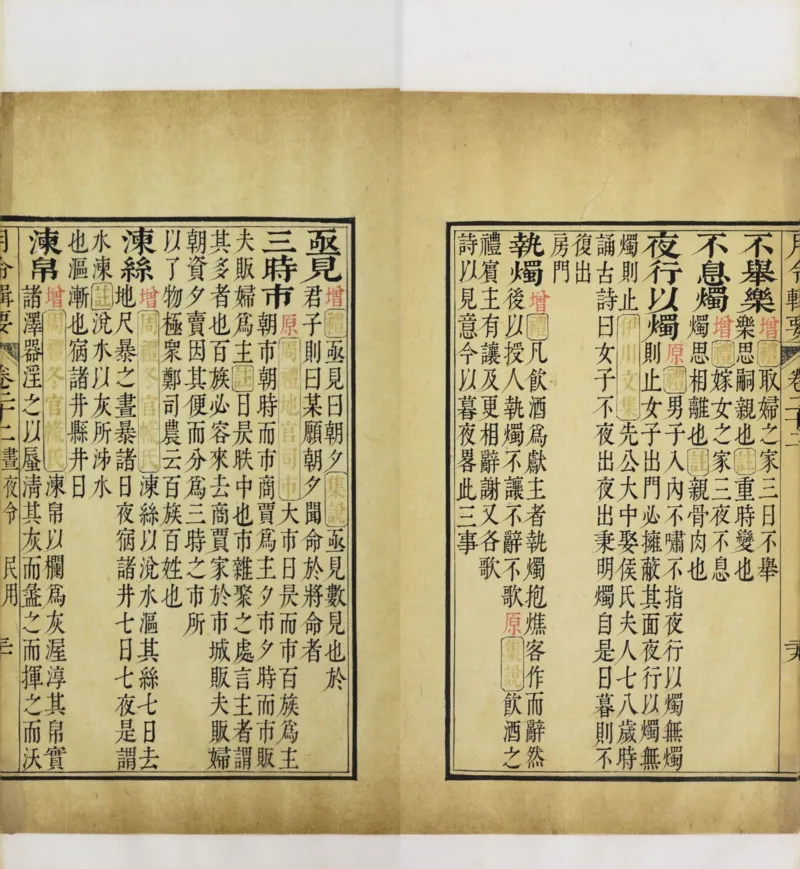 月令輯要 卷二十二
不舉樂
增禮取婦之家三日不舉
樂思嗣親也註重時變也
不息燭
增禮嫁女之家三夜不息
燭思相離也註親骨肉也
夜行以燭
原禮男子入內不嘯不指夜行以燭無燭
則止女子出門必擁蔽其面夜行以燭無
燭則止伊川文集先公大中娶侯氏夫人七八歲時
誦古詩曰女子不夜出夜出秉明燭自是日暮則不
復出
房門
執燭
增禮凡飲酒爲獻主者執燭抱燋客作而辭然
後以授人執燭不讓不辭不歌原集說飲酒之
禮賓主有讓及更相辭謝又各歌
詩以見意今以暮夜畧此三事
亟見
增禮亟見曰朝夕集說亟見數見也於
君子則曰某願朝夕聞命於將命者
三時市
原周禮地官司市大市日昃而市百族爲主
朝市朝時而市商賈爲主夕市夕時而市販
夫販婦爲主註日昃昳中也市雜聚之處言主者謂
其多者也百族必容來去商賈家於市城販夫販婦
朝資夕賣因其便而分爲三時之市所
以了物極衆鄭司農云百族百姓也
湅絲
增周禮冬官㡛氏湅絲以涗水漚其絲七日去
地尺暴之晝暴諸日夜宿諸井七日七夜是謂
水湅註涗水以灰所泲水
也漚漸也宿諸井縣井日
湅帛
增周禮冬官㡛氏湅帛以欄爲灰渥淳其帛實
諸澤器淫之以蜃清其灰而盝之而揮之而沃
月令輯要 卷二十二晝夜令 民用